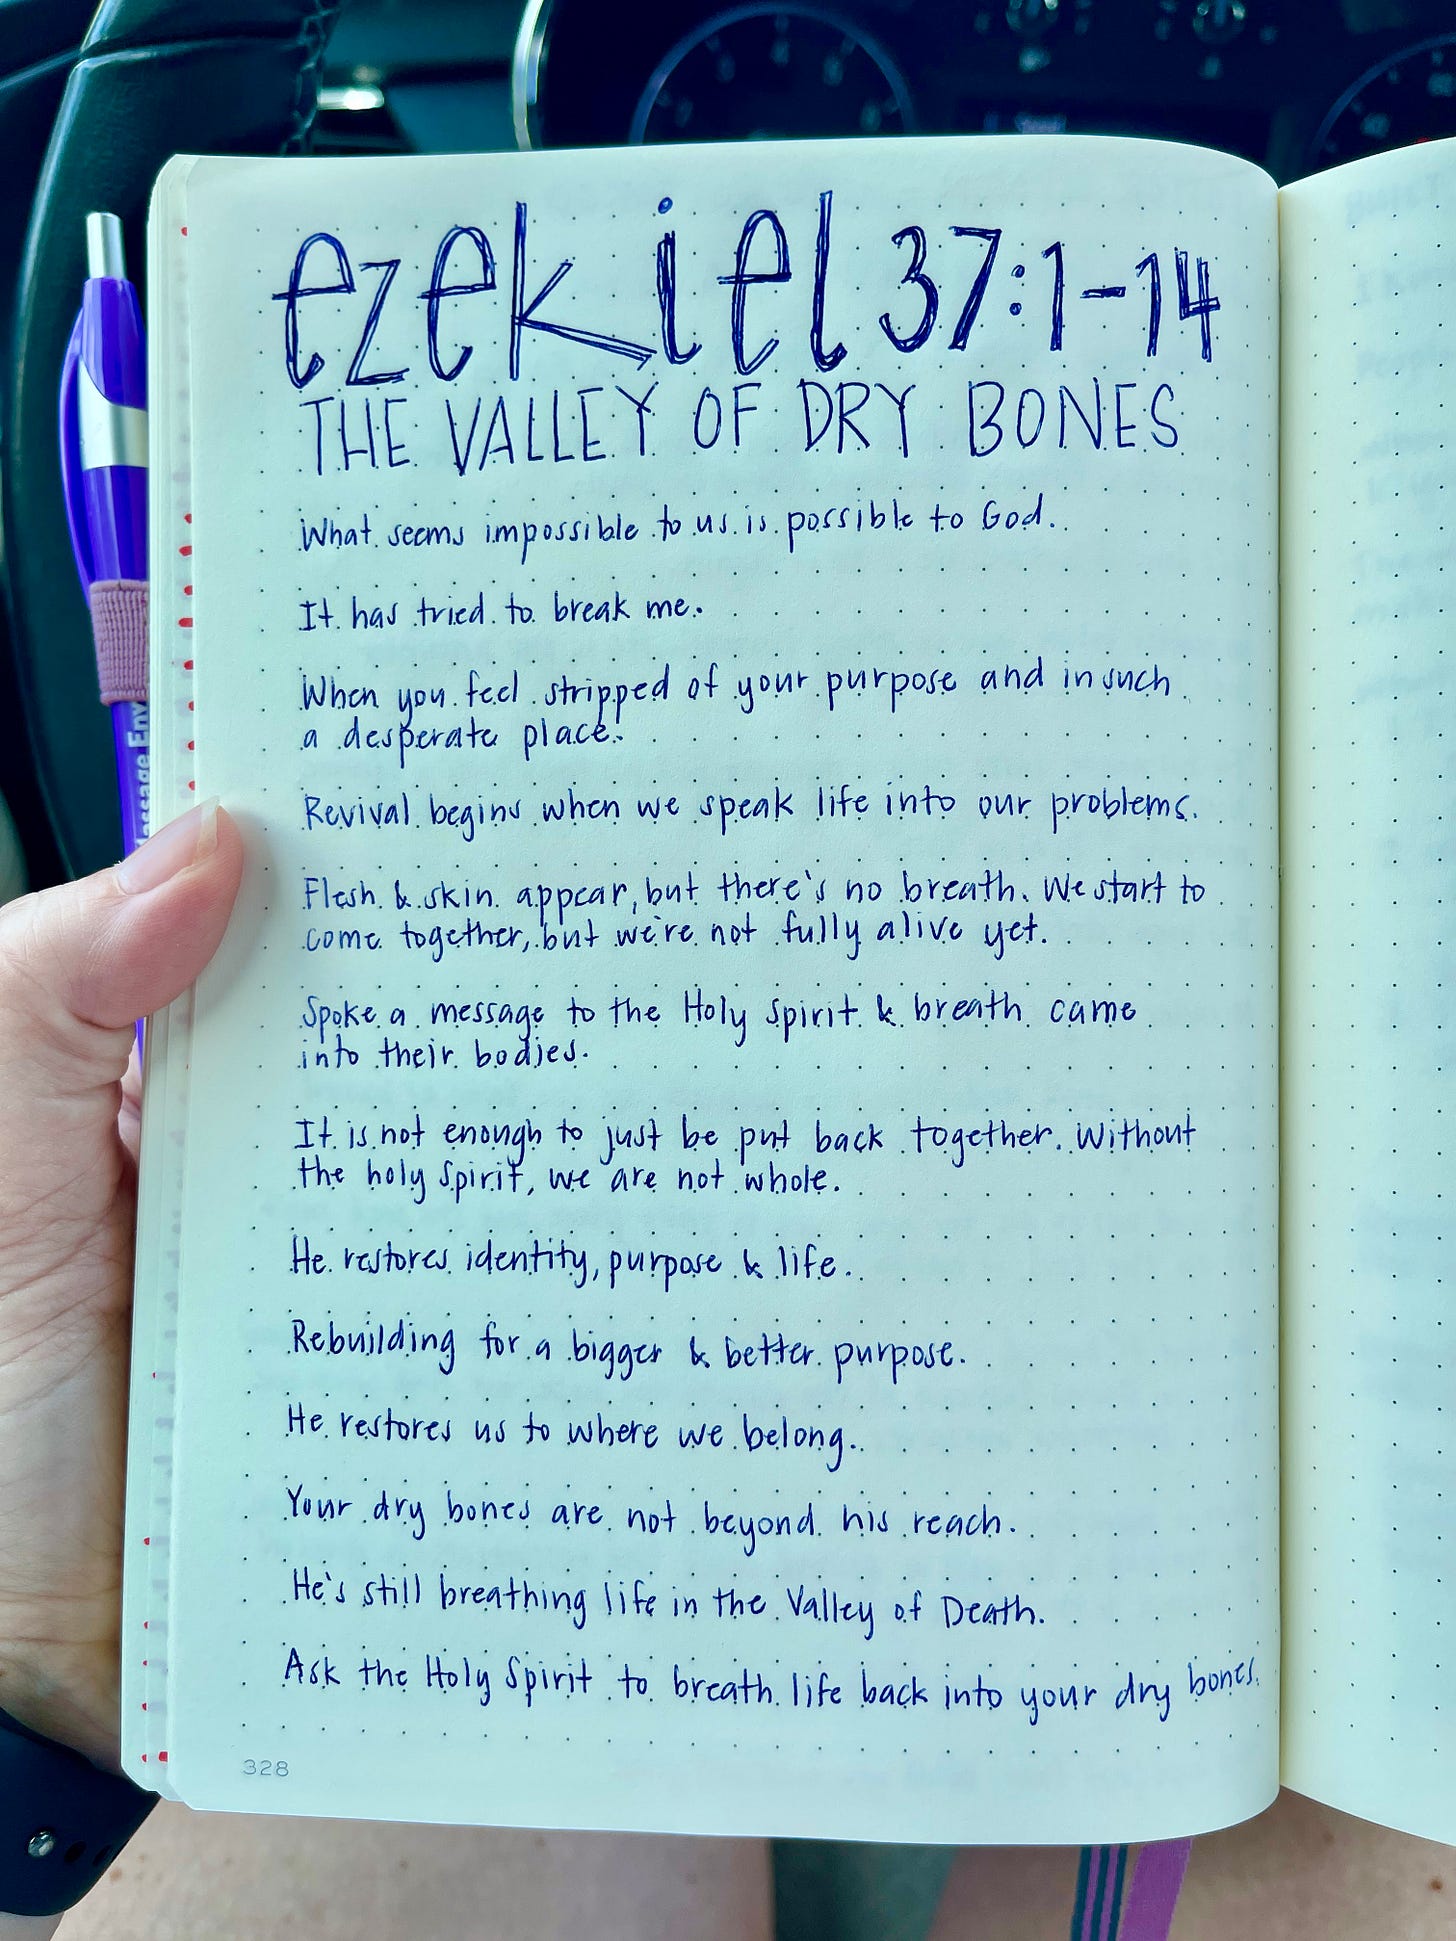 ezekiel 37:1-14
THE VALLEY OF DRY BONES
What seems impossible to us is possible to God.
It has tried to break me.
When you feel stripped of your purpose and in such
a desperate place.
Revival begins when we speak life into our problems.
Flesh & skin appear, but there's no breath. We start to
come together, but we're not fully alive yet.
Spoke a message to the Holy Spirit & breath came
into their bodies.
It is not enough to just be put back together. Without
the holy spirit, we are not whole.
He restores identity, purpose & life.
Rebuilding for a bigger & better purpose.
He restores us to where we belong.
Your dry bones are not beyond his reach.
He's still breathing life in the Valley of Death.
Ask the Holy Spirit to breath life back into your dry bones.
328